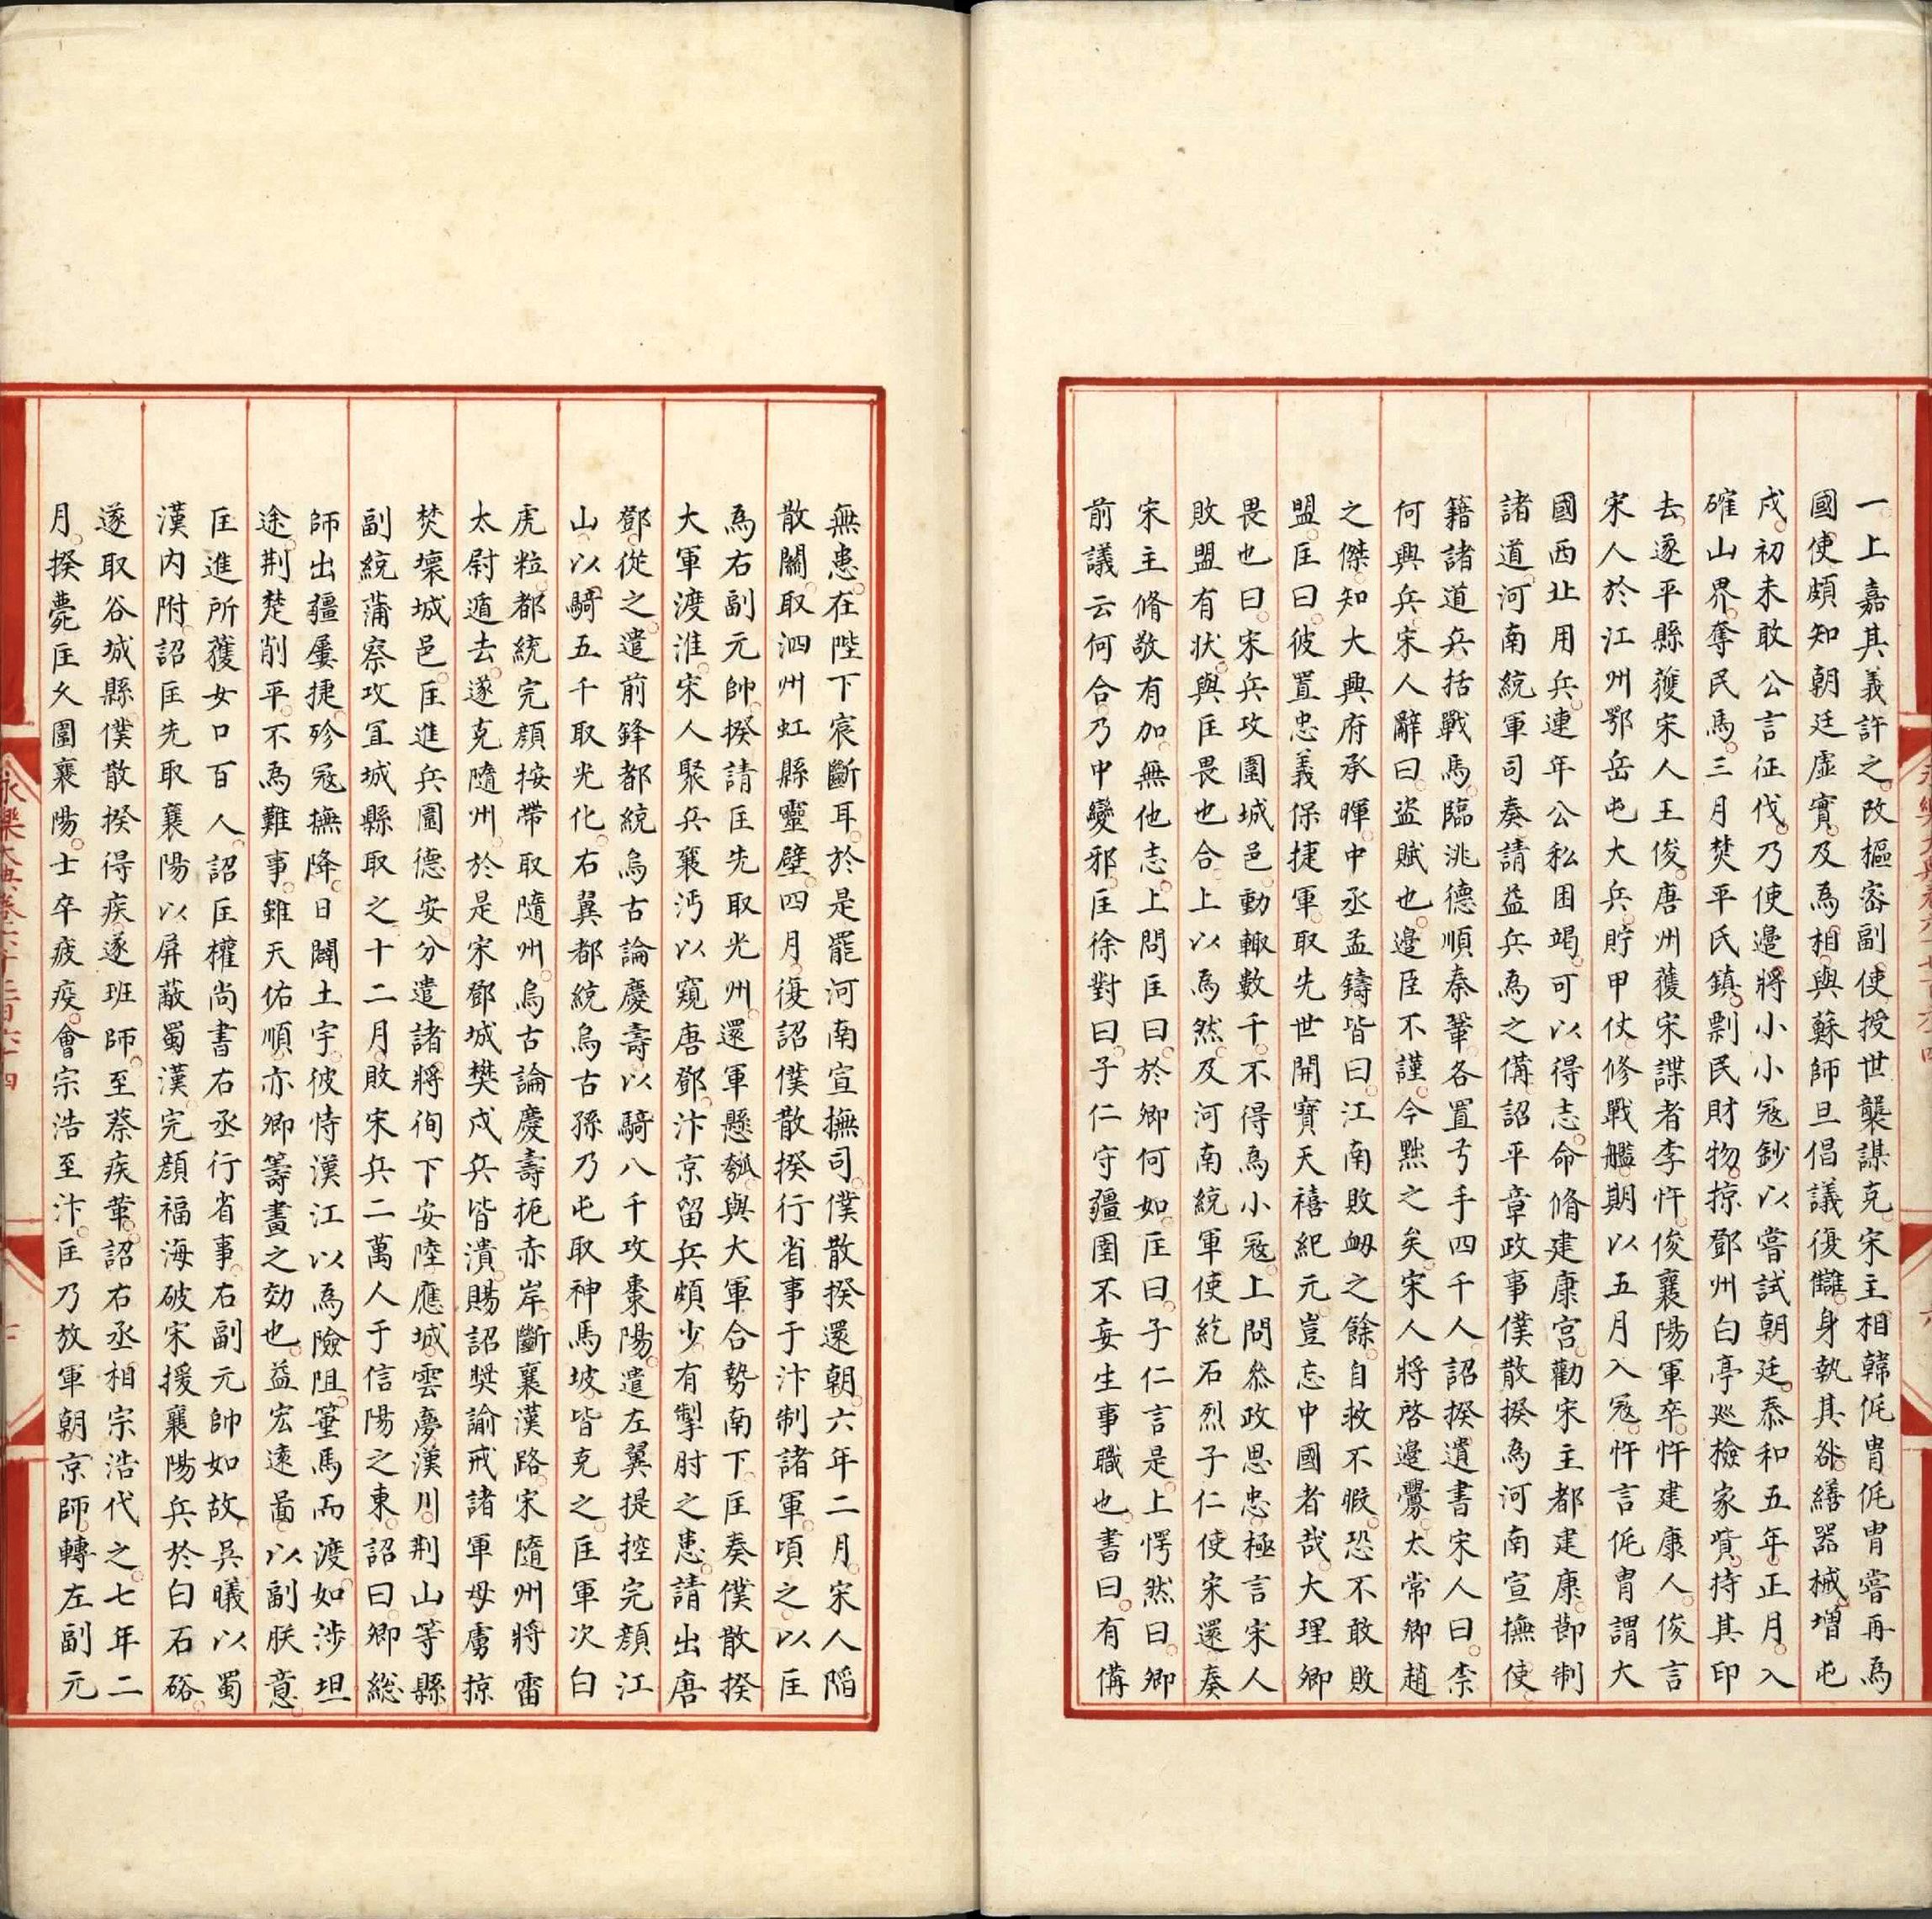 一上嘉其義許之改樞密副使授世襲謀克宋主相韓侂胄侂胄嘗再為
國使頗知朝廷虛實及為相與蘇師旦倡議復讎身執其咎繕器械增屯
戍初未敢公言征伐乃使邊將小小冦鈔以嘗試朝廷泰和五年正月入
確山界奪民馬三月焚平氏鎮剽民財物掠鄧州白亭廵檢家貲持其印
去遂平縣獲宋人王俊唐州獲宋諜者李忤俊襄陽軍卒忤建康人俊言
宋人於江州鄂岳屯大兵貯甲仗修戰艦期以五月入冦忤言侂胄謂大
國西北用兵連年公私困竭可以得志命脩建康宮勸宋主都建康節制
諸道河南統軍司奏請益兵為之備詔平章政事僕散揆為河南宣撫使
籍諸道兵括戰馬臨洮德順秦鞏各置弓手四千人詔揆遺書宋人曰柰
何興兵宋人辭曰盜賊也邊臣不謹今黜之矣宋人將啓邊釁太常卿趙
之傑知大興府承暉中丞孟鑄皆曰江南敗衂之餘自救不暇恐不敢敗
盟匡曰彼置忠義保捷軍取先世開寶天禧紀元豈忘中國者哉大理卿
畏也曰宋兵攻圍城邑動輙數千不得為小冦上問叅政思忠極言宋人
敗盟有状與匡畏也合上以為然及河南統軍使紇石烈子仁使宋還奏
宋主脩敬有加無他志上問匡曰於卿何如匡曰子仁言是上愕然曰卿
前議云何合乃中變邪匡徐對曰子仁守疆圉不妄生事職也書曰有備
無患在陛下宸斷耳於是罷河南宣撫司僕散揆還朝六年二月宋人陷
散關取泗州虹縣靈壁四月復詔僕散揆行省事于汴制諸軍頃之以匡
為右副元帥揆請匡先取光州還軍懸瓠與大軍合勢南下匡奏僕散揆
大軍渡淮宋人聚兵襄沔以窺唐鄧汴京留兵頗少有掣肘之患請出唐
鄧從之遣前鋒都統烏古論慶壽以騎八千攻棗陽遣左翼提控完顔江
山以騎五千取光化右翼都統烏古孫乃屯取神馬坡皆克之匡軍次白
虎粒都統完顔按帶取隨州烏古論慶壽扼赤岸斷襄漢路宋隨州將雷
太尉遁去遂克隨州於是宋鄧城樊戍兵皆潰賜詔奬諭戒諸軍毋虜掠
焚壞城邑匡進兵圍德安分遣諸將徇下安陸應城雲夢漢川荆山等縣
副統蒲察攻宜城縣取之十二月敗宋兵二萬人于信陽之東詔曰卿総
師出疆屢捷殄冦撫降日闢土宇彼恃漢江以為險阻箠馬而渡如涉坦
途荆楚削平不為難事雖天佑順亦卿籌畫之効也益宏遠啚以副朕意
匡進所獲女口百人詔匡權尚書右丞行省事右副元帥如故吳曦以蜀
漢內附詔匡先取襄陽以屏蔽蜀漢完顔福海破宋援襄陽兵於白石硲
遂取谷城縣僕散揆得疾遂班師至蔡疾革詔右丞相宗浩代之七年二
月揆薨匡久圍襄陽士卒疲疫會宗浩至汴匡乃放軍朝京師轉左副元